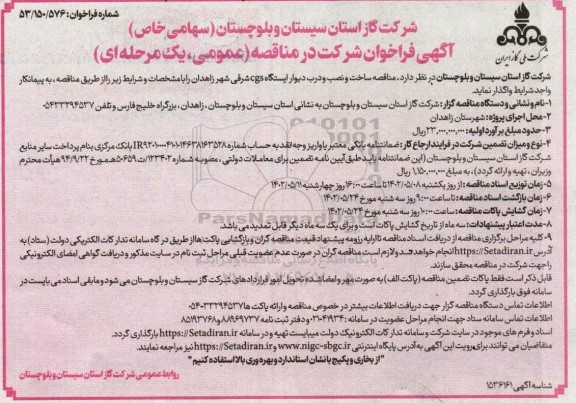 شماره فراخوان: ۵۳/۱۵۰/۵۷۶
شرکت گاز استان سیستان و بلوچستان (سهامی خاص)
آگهی فراخوان شرکت در مناقصه (عمومی، یک مرحله ای)
شرکت ملی گاز ایران
شرکت گاز استان سیستان و بلوچستان در نظر دارد، مناقصه ساخت و نصب و درب دیوار ایستگاه cgs شرقی شهر زاهدان را با مشخصات و شرایط زیر را از طریق مناقصه، به پیمانکار
واجد شرایط واگذار نماید.
۱- نام و نشانی و دستگاه مناقصه گزار: شرکت گاز استان سیستان و بلوچستان به نشانی استان سیستان و بلوچستان، زاهدان، بزرگراه خلیج فارس و تلفن ۰۵۴۳۳۲۹۴۵۳۷
۲- محل اجرای پروژه: شهرستان زاهدان
۳- حدود مبلغ برآورد اولیه: ۲۳،۰۰۰،۰۰۰،۰۰۰ ریال
۴- نوع و میزان تضمین شرکت در فرایند ارجاع کار: ضمانتنامه بانکی معتبر یا واریز وجه نقد به حساب شماره IR۹۲۰۱۰۰۰۰۴۱۰۱۰۴۶۳۸۱۶۳۵۲۸ بانک مرکزی بنام پرداخت سایر منابع
شرکت گاز استان سیستان و بلوچستان (این ضمانتنامه باید طبق آیین نامه تضمین برای معاملات دولتی، مصوبه شماره ۱۲۳۴۰۲/ت۵۰۶۵۹هـ مورخ ۹۴/۹/۲۲ هیأت محترم
وزیران، تهیه و ارائه گردد)، به مبلغ ۱،۱۵۰،۰۰۰،۰۰۰ ریال می باشد.
۵- زمان توزیع اسناد مناقصه: از روز یکشنبه ۱۴۰۲/۰۵/۰۸ تا ساعت ۱۶:۰۰ روز چهارشنبه ۱۴۰۲/۰۵/۱۱
۶- زمان بازگشت اسناد مناقصه: تا ساعت ۹:۰۰ روز سه شنبه مورخ ۱۴۰۲/۰۵/۲۴
۷- زمان گشایش پاکات مناقصه: ساعت ۱۰:۰۰ روز سه شنبه مورخ ۱۴۰۲/۰۵/۲۴
۸- مدت اعتبار پیشنهادات: سه ماه از تاریخ گشایش پاکات است و برای یک سه ماه دیگر قابل تمدید می باشد.
۹- کلیه مراحل برگزاری مناقصه از دریافت اسناد مناقصه تا ارایه رزومه پیشنهاد قیمت مناقصه گران و بازگشایی پاکت ها از طریق درگاه سامانه تدارکات الکترونیکی دولت (ستاد) به
آدرس https://Setadiran.ir انجام خواهد شد و لازم است مناقصه گران در صورت عدم عضویت قبلی، مراحل ثبت نام در سایت مذکور و دریافت گواهی امضای الکترونیکی
را جهت شرکت در مناقصه محقق سازند.
قابل ذکر است فقط پاکات تضمین مناقصه (پاکت الف) به صورت مهر و امضا شده تحویل امور قراردادهای شرکت گاز استان سیستان و بلوچستان می شود و مابقی اسناد می بایست در
سامانه فوق بارگذاری گردد.
اطلاعات تماس دستگاه مناقصه گزار جهت دریافت اطلاعات بیشتر در خصوص مناقصه و ارائه پاکت ها ۰۵۴۰۳۳۲۹۴۵۳۷
اطلاعات تماس سامانه ستاد جهت انجام مراحل عضویت در سامانه: ۴۱۹۳۴-۰۲۱ و دفتر ثبت نامه ۸۸۹۶۹۷۳۷ و ۸۵۱۹۳۷۶۸
اسناد و فرم های موجود در سایت شرکت و سامانه تدارکات الکترونیک دولت میبایست تهیه و در سامانه https://Setadiran.ir بارگذاری گردد.
متقاضیان می توانند برای رویت این آگهی به آدرس پایگاه اینترنتی www.nigc-sbgc.ir و https://Setadiran.ir نیز مراجعه نمایند.
"از بخاری و پکیج با نشان استاندارد و بهره وری بالا استفاده کنیم"
روابط عمومی شرکت گاز استان سیستان و بلوچستان
شناسه آگهی ۱۵۳۶۱۶۱